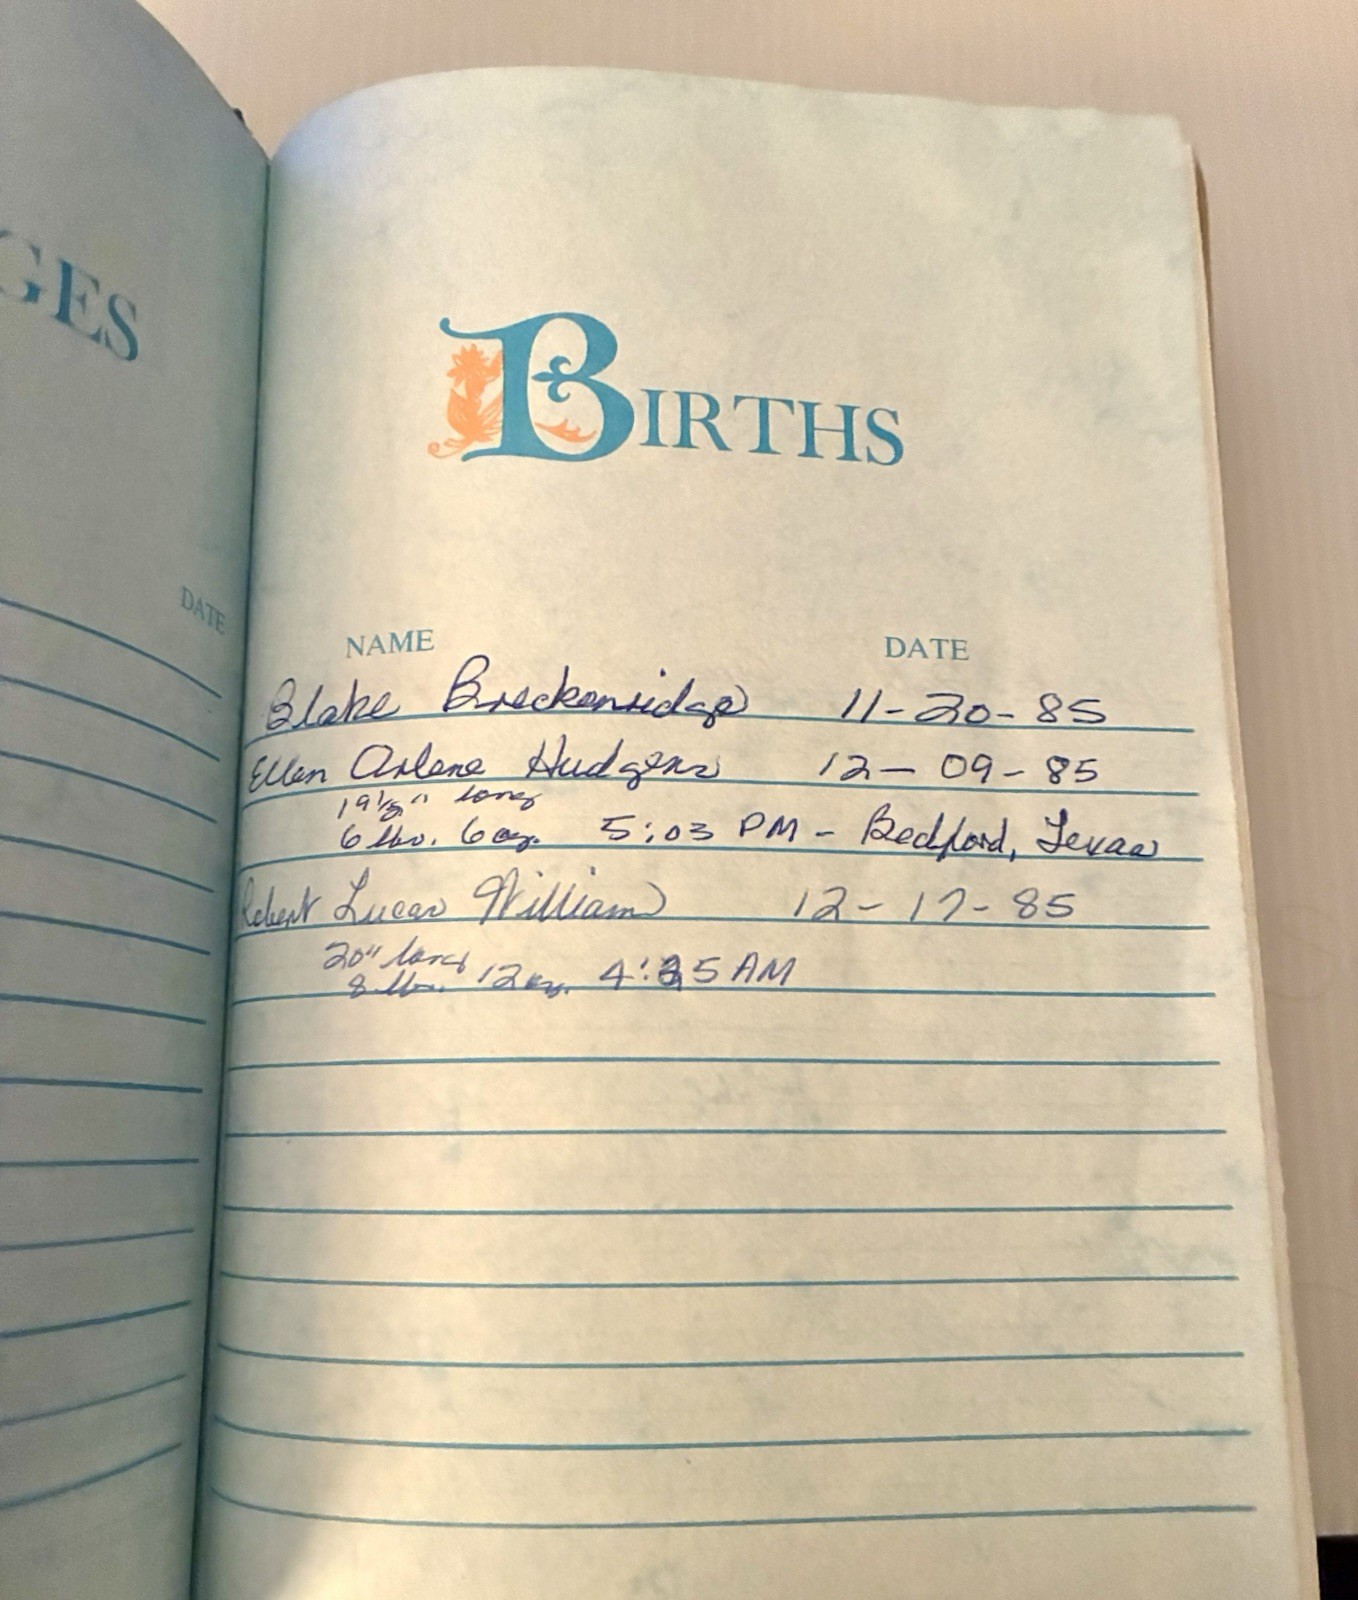 GES
DATE
BIRTHS
NAME DATE
Blake Breckenridge 11-20-85
Ellen Arlene Hudgens 12-09-85
19½" long
6 lbs. 6 oz. 5:03 PM - Bedford, Texas
Robert Lucas William 12-17-85
20" long
8 lbs. 12 oz. 4:35 AM